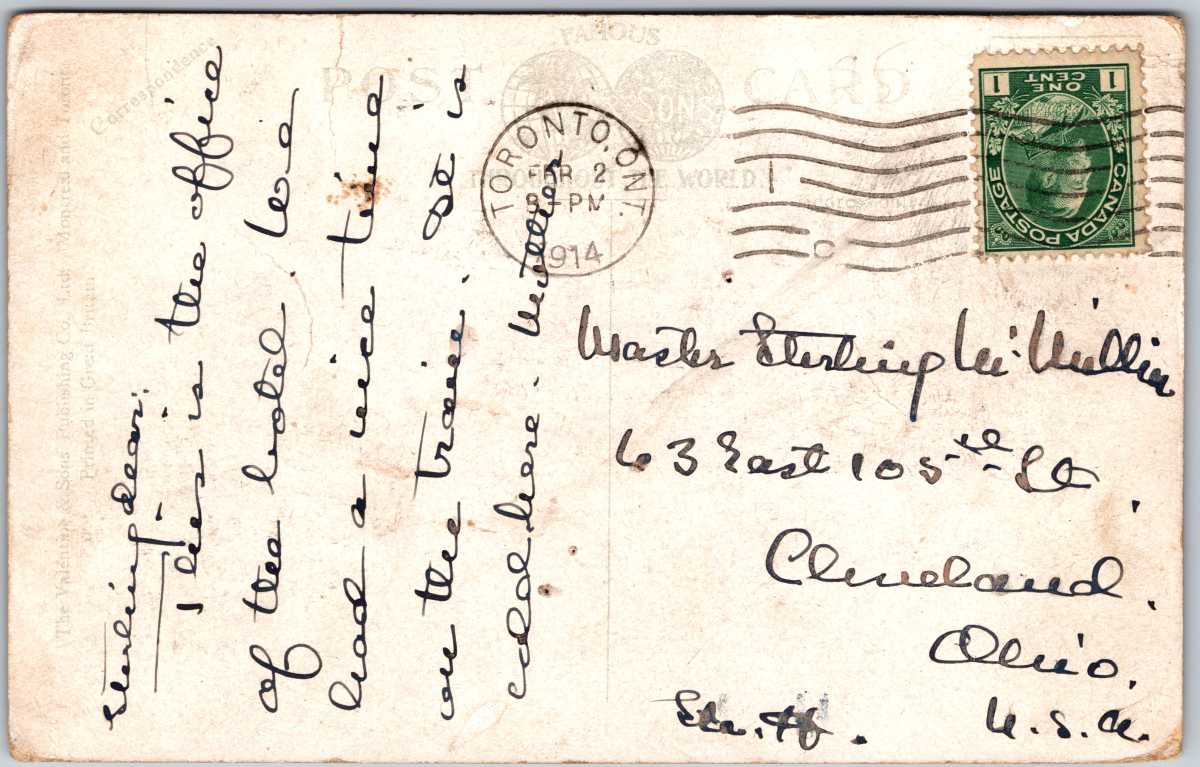 Correspondence
FAMOUS
POST CARD
SONS
THROUGHOUT THE WORLD.
The Valentine & Sons Publishing Co. Ltd. Montreal and Toronto
Printed in Great Britain
TORONTO, ONT.
FEB 2
8-PM
1914
1 ONE CENT 1
CANADA POSTAGE
Sterling dear:
This is the office
of the hotel. We
had a nice time
on the train. It is
cold here. Mother
Master Sterling McMillin
63 East 105th St.
Cleveland.
Ohio.
U.S.A.